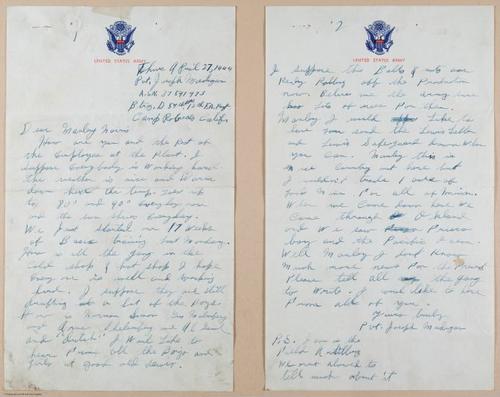 UNITED STATES ARMY
April 27, 1944
Pvt. Joseph
A.S.N. 37591973
Camp Roberts Calif.
Dear Manley Norris
How are you and the Rest of
the Employees at the Plant. I
suppose Everybody is Working hard.
the weather is nice and Warm
down here the temp. goes up
to 80° and 90° Everyday now
and the sun shines Everyday.
We Just started our 17 Weeks
of Basic training last Monday.
How is all the gang in the
shop & shop I hope
Every one is well and working
hard. I suppose they are still
drafting a lot of the Boys
How is Norman
and
and "Dutch" I Would Like to
hear From all the Boys and
girls at good old
UNITED STATES ARMY
I suppose the Belts & are
Rolling off the Production
now. Believe me the army sure
has lots of uses For them.
Manley I would Like to
have you send the
and down When
you Can. Manley this is
nice Country out here but
I wouldn't trade 1 acre of
For all of
When we Came down here We
Came through Oakland
and We saw Frisco
bay and the Pacific Ocean.
Well Manley I dont Know
Much more news For the Present
Please tell all the gang
to Write. I would like to hear
From all of you.
Yours truly
Pvt. Joseph
P.S. I am in the
Field Artillery
We are not allowed to
tell much about it